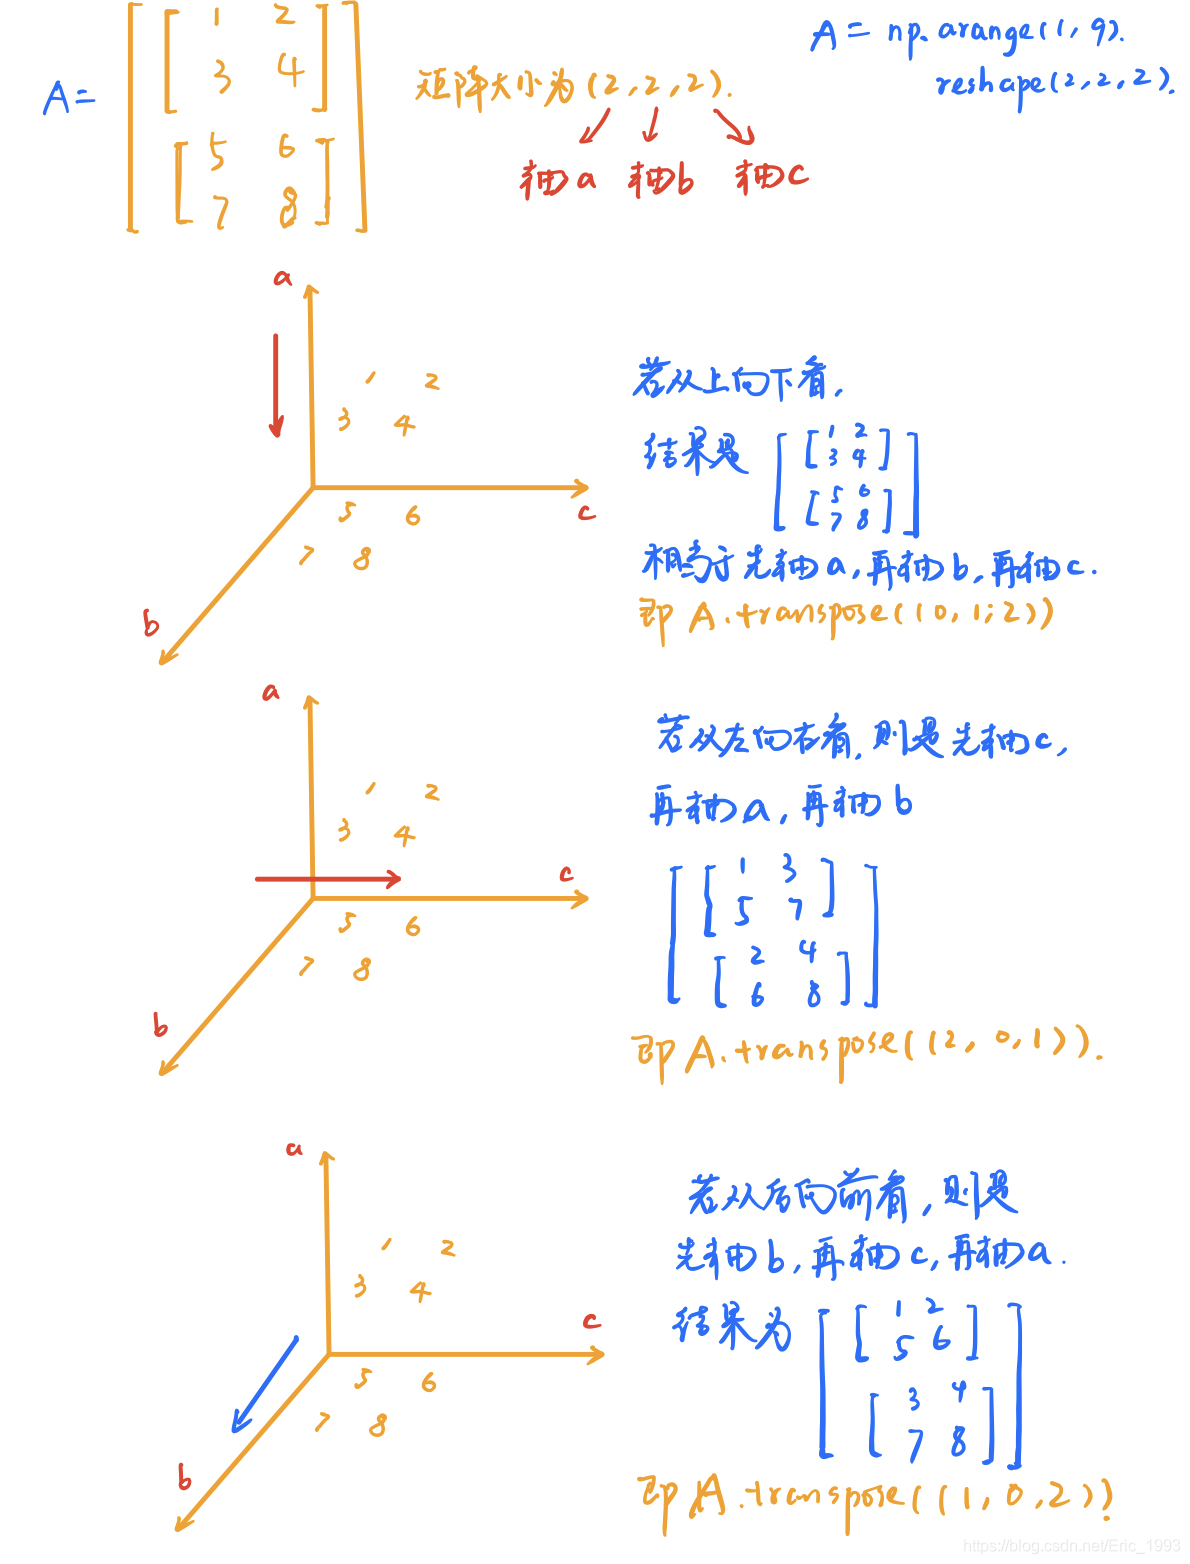 A = [[[1 2
3 4]
[5 6
7 8]]]
矩阵大小为(2,2,2).
轴a 轴b 轴c
A = np.arange(1,9).
reshape(2,2,2).
a
1 2
3 4
c
5 6
7 8
b
若从上向下看,
结果是 [[1 2
3 4]
[5 6
7 8]]
相当于先轴a,再轴b,再轴c.
即 A.transpose((0,1,2))
a
1 2
3 4
c
5 6
7 8
b
若从左向右看,则是先轴c,
再轴a,再轴b
[[1 3
5 7]
[2 4
6 8]]
即 A.transpose((2,0,1)).
a
1 2
3 4
c
5 6
7 8
b
若从后向前看,则是
先轴b,再轴c,再轴a.
结果为 [[1 2
5 6]
[3 4
7 8]]
即 A.transpose((1,0,2))
https://blog.csdn.net/Eric_1993